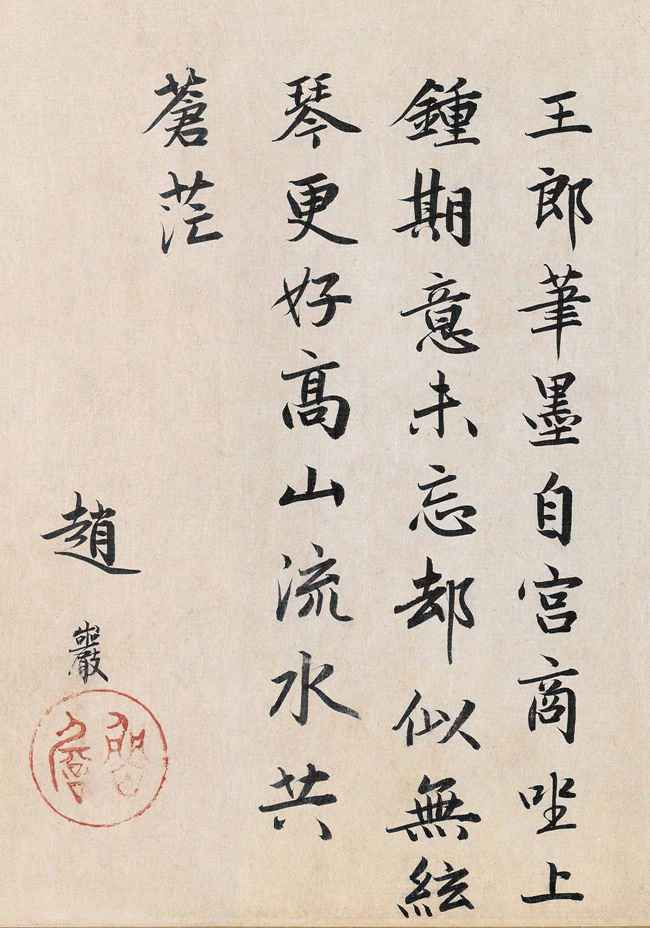 王郎筆墨自宫商坐上
鍾期意未忘却似無絃
琴更好髙山流水共
蒼茫
趙巖